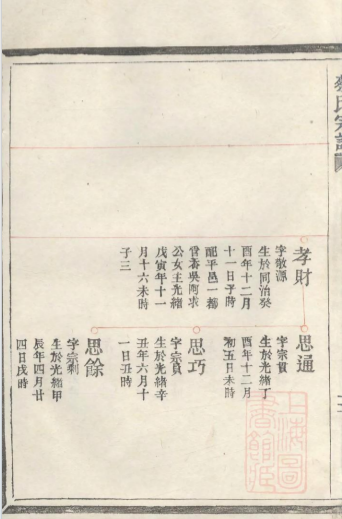 氏宗譜
孝財
字敬源
生於同治癸
酉年十二月
十一日子時
配平邑一都
曾畨吳阿求
公女生光緒
戊寅年十一
月十六未時
子三
思通
字宗貫
生於光緒丁
酉年十二月
初五日未時
思巧
字宗貟
生於光緒辛
丑年六月十
一日丑時
思餘
字宗剩
生於光緒甲
辰年四月廿
四日戌時
上海圖
書館藏